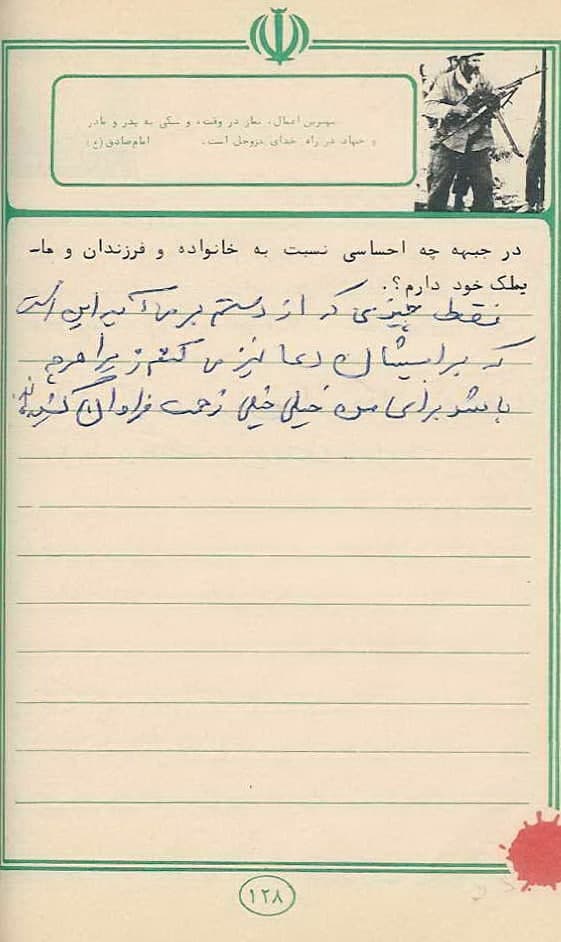 بهترین اعمال، نماز در وقت، و نیکی به پدر و مادر
و جهاد در راه خدای عزوجل است. امام صادق (ع)
در جبهه چه احساسی نسبت به خانواده و فرزندان و ما-
یملک خود دارم؟.
فقط چیزی که از دستم بر می آید این است
که برایشان دعا نیز می کنم زیرا هرچه
باشد برای من خیلی خیلی زحمت فراوان کشیده‌اند
۱۲۸